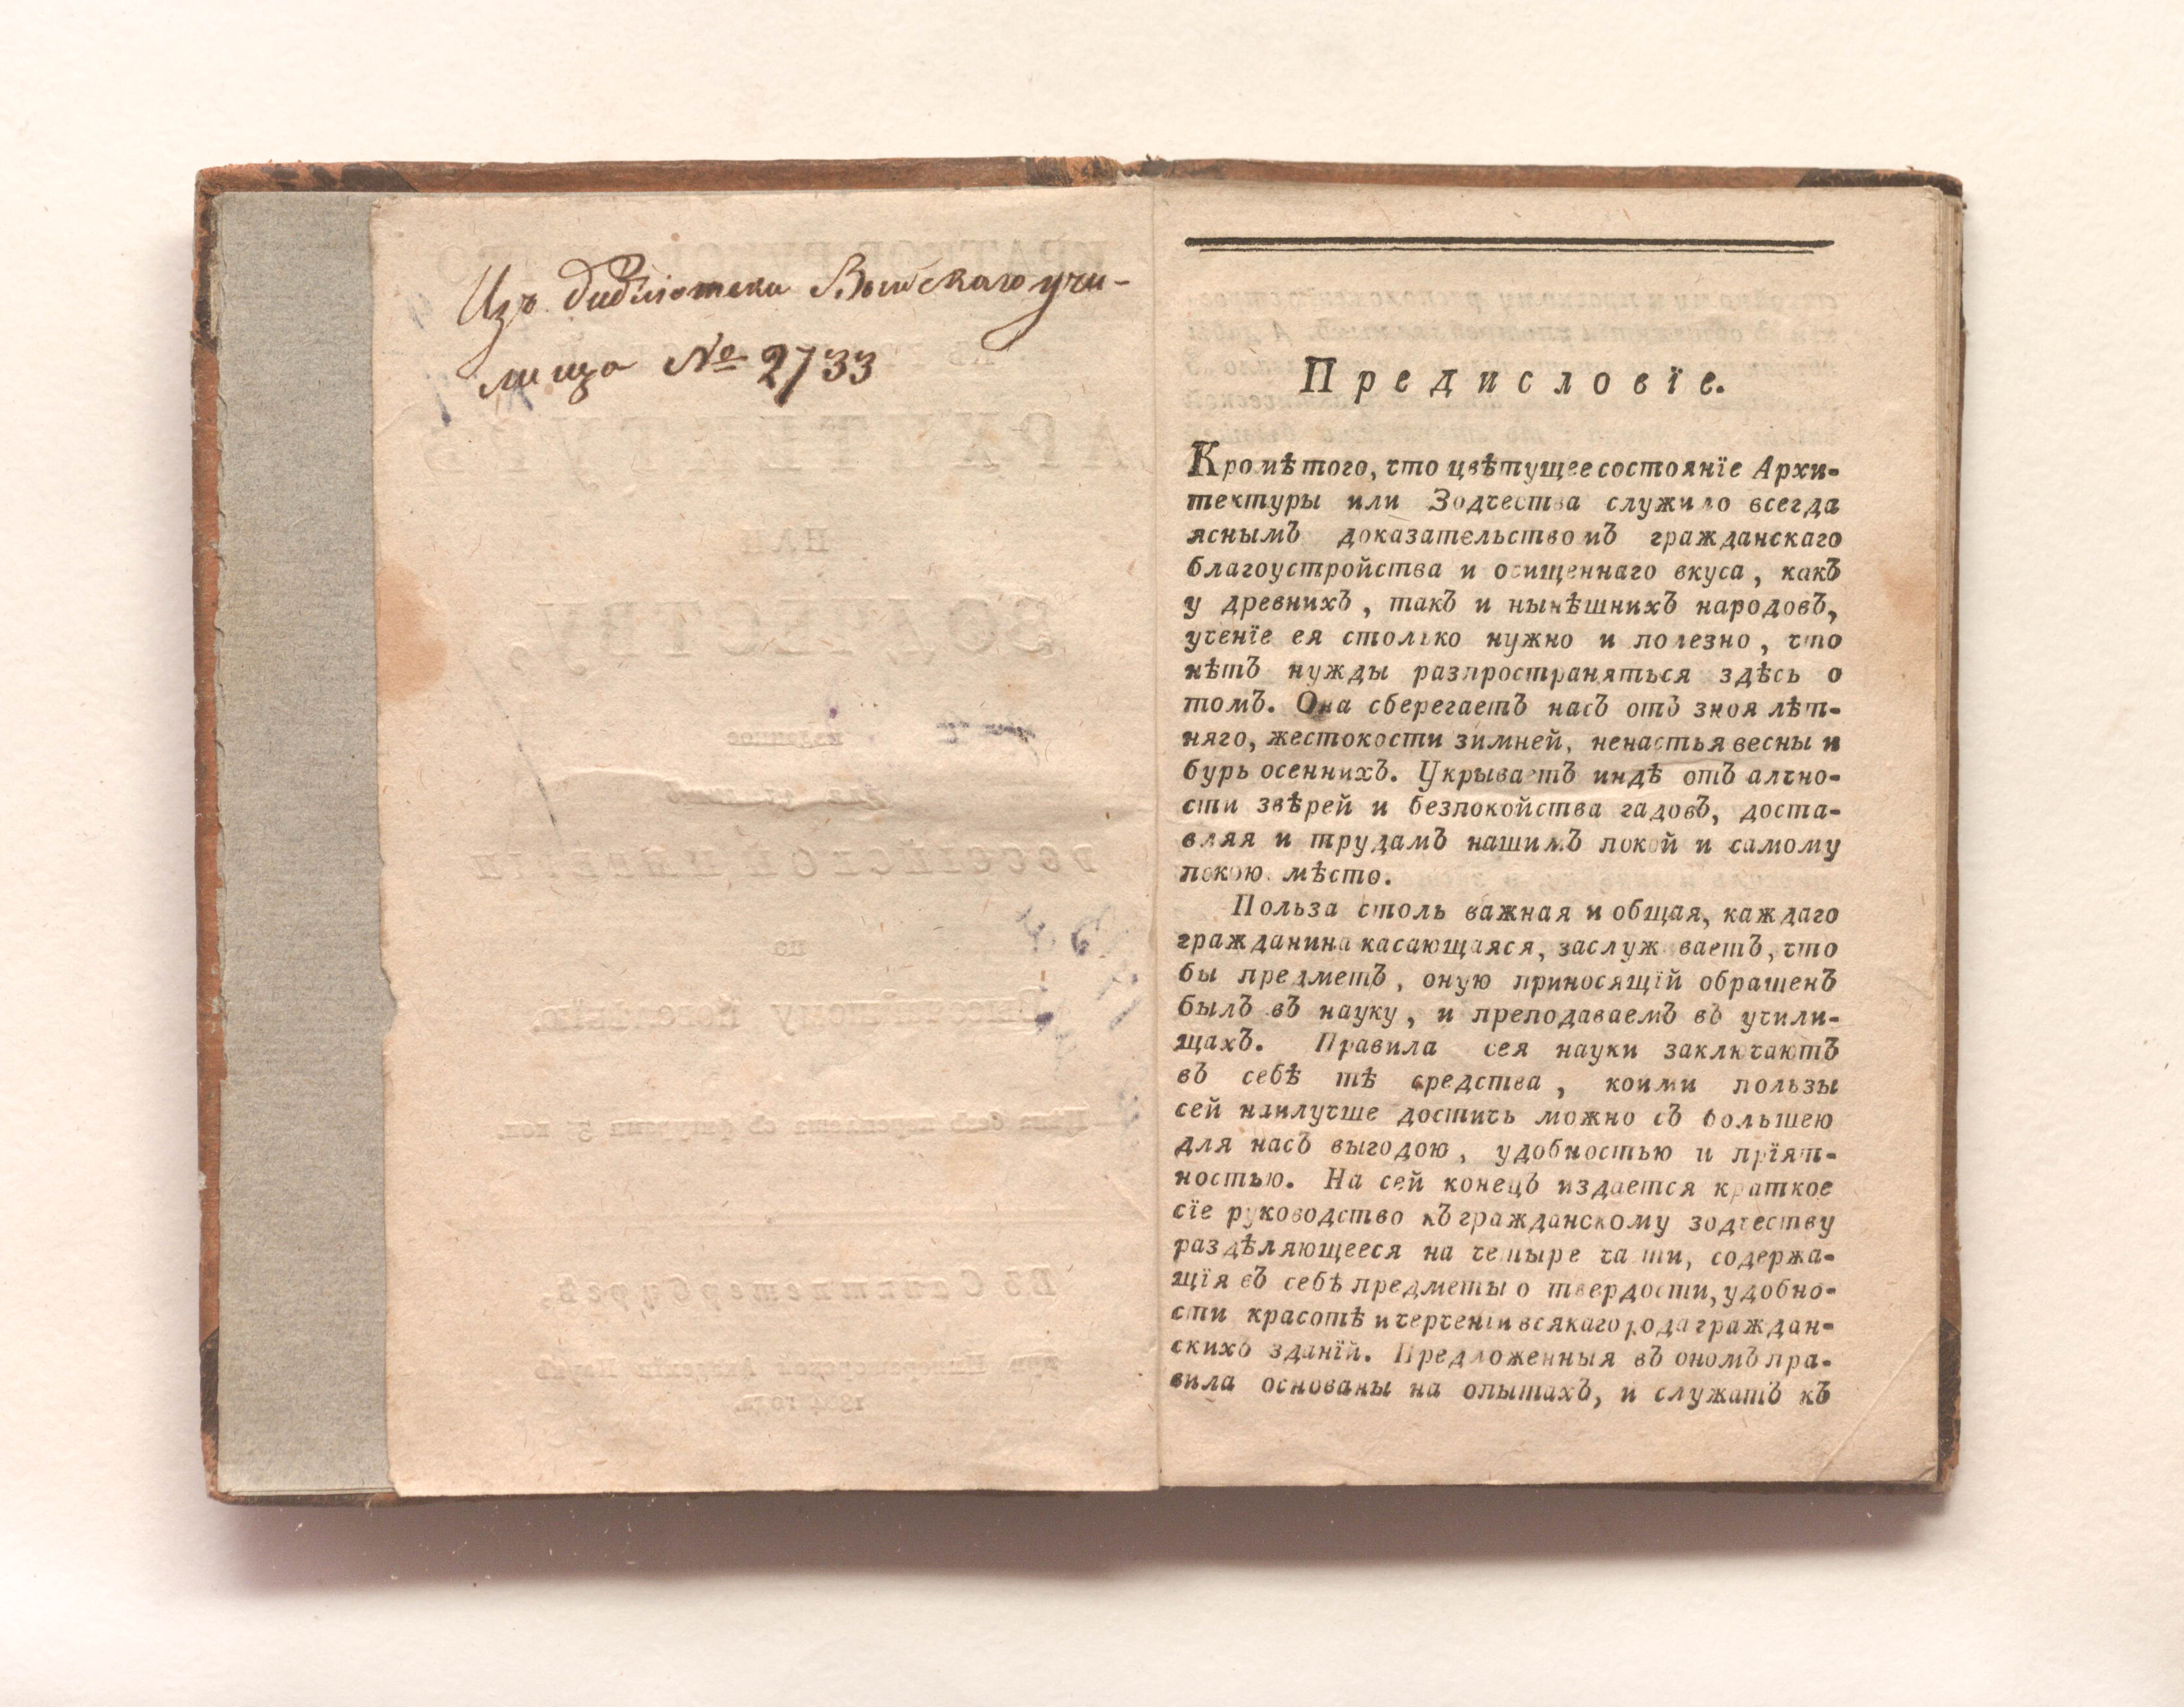 Изъ библіотеки Выйскаго учи-
лища № 2733
Предисловїе.
Кромѣ того, что цвѣтущее состоянїе Архи-
тектуры или Зодчества служило всегда
яснымъ доказательствомъ гражданскаго
благоустройства и очищеннаго вкуса, какъ
у древнихъ, такъ и нынѣшнихъ народовъ,
ученїе ея столько нужно и полезно, что
нѣтъ нужды разпространяться здѣсь о
томъ. Она сберегаетъ насъ отъ зноя лѣт-
няго, жестокости зимней, ненастья весны и
бурь осеннихъ. Укрываетъ индѣ отъ алчно-
сти звѣрей и безпокойства гадовъ, доста-
вляя и трудамъ нашимъ покой и самому
покою мѣсто.
Польза столь важная и общая, каждаго
гражданина касающаяся, заслуживаетъ, что
бы предметъ, оную приносящїй обращенъ
былъ въ науку, и преподаваемъ въ учили-
щахъ. Правила сея науки заключаютъ
въ себѣ тѣ средства, коими пользы
сей наилучше достичь можно съ большею
для насъ выгодою, удобностью и прїят-
ностью. На сей конецъ издается краткое
сїе руководство къ гражданскому зодчеству
раздѣляющееся на четыре части, содержа-
щїя въ себѣ предметы о твердости, удобно-
сти красотѣ и черченїи всякаго рода граждан-
скихъ зданїй. Предложенныя въ ономъ пра-
вила основаны на опытахъ, и служатъ къ